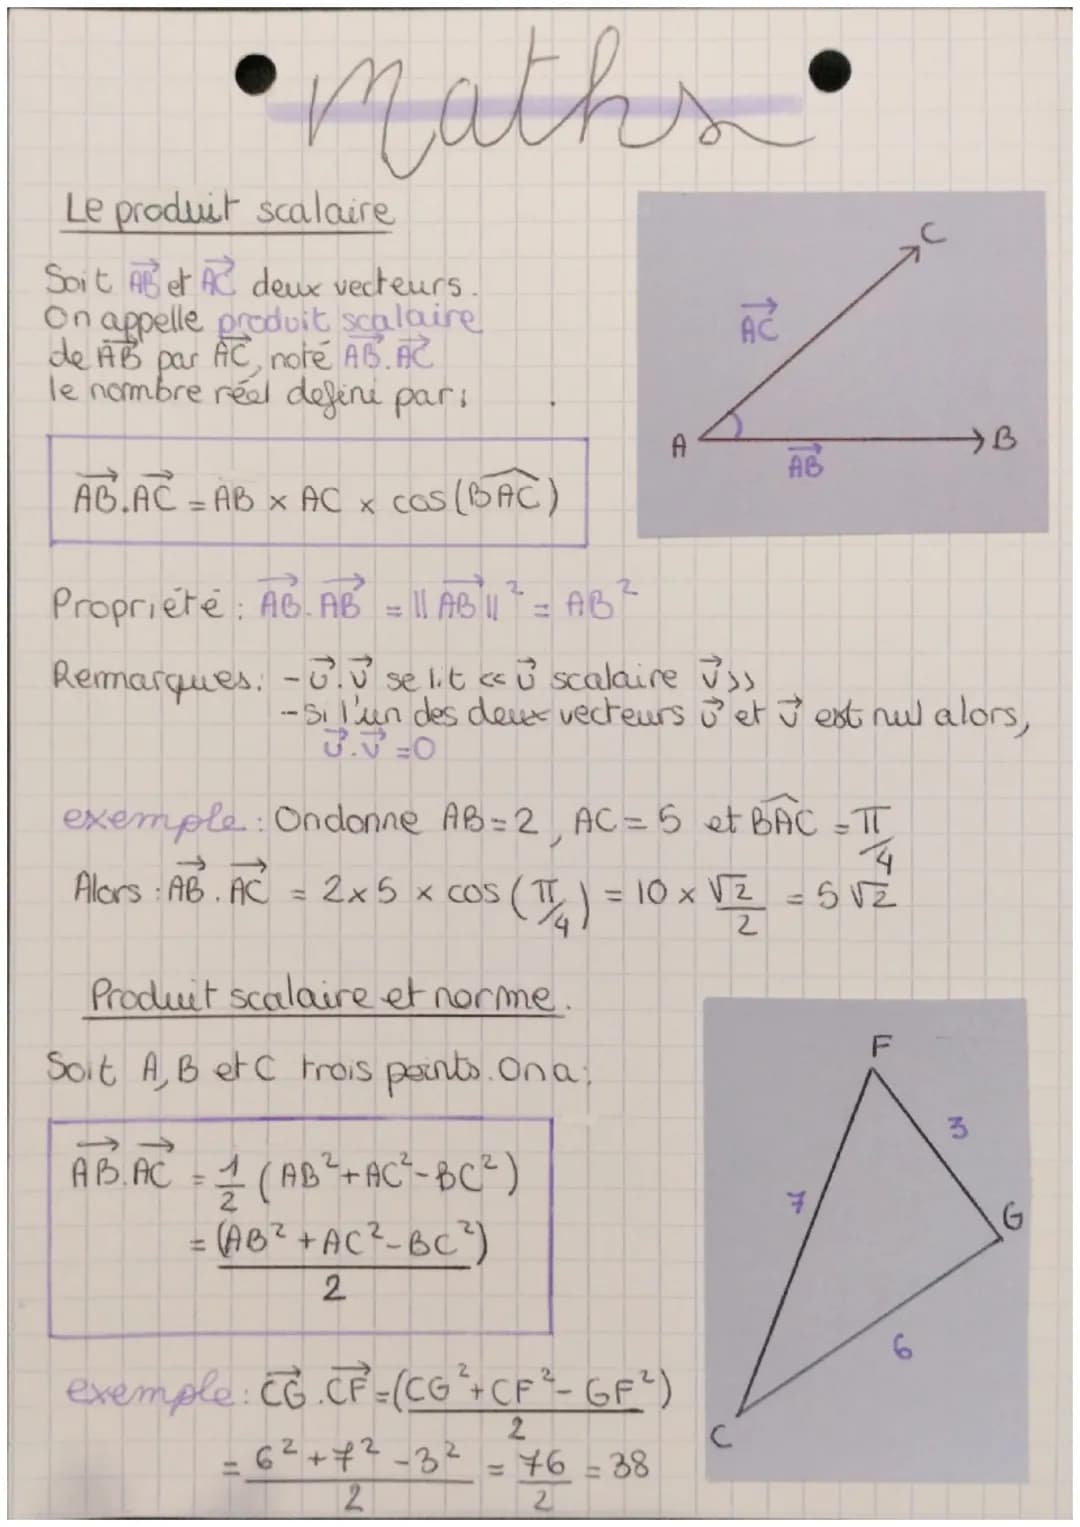 Maths
Le produit scalaire
Soit $\overrightarrow{AB}$ et $\overrightarrow{AC}$ deux vecteurs.
On appelle produit scalaire
de $\overrightarrow{AB}$ par $\overrightarrow{AC}$, noté $\overrightarrow{AB}.\overrightarrow{AC}$
le nombre réel defini par:
$\overrightarrow{AB}.\overrightarrow{AC} = AB \times AC \times \cos(\widehat{BAC})$
C
$\overrightarrow{AC}$
A
B
$\overrightarrow{AB}$
Propriété : $\overrightarrow{AB}.\overrightarrow{AB} = ||\overrightarrow{AB}||^2 = AB^2$
Remarques: - $\vec{u}.\vec{v}$ se lit << $\vec{u}$ scalaire $\vec{v}$ >>
- Si l'un des deux vecteurs $\vec{u}$ et $\vec{v}$ est nul alors,
$\vec{u}.\vec{v} = 0$
exemple : On donne AB = 2, AC = 5 et $\widehat{BAC} = \frac{\pi}{4}$
Alors : $\overrightarrow{AB}.\overrightarrow{AC} = 2 \times 5 \times \cos(\frac{\pi}{4}) = 10 \times \frac{\sqrt{2}}{2} = 5\sqrt{2}$
Produit scalaire et norme.
Soit A, B et C trois points. On a :
$\overrightarrow{AB}.\overrightarrow{AC} = \frac{1}{2}(AB^2 + AC^2 - BC^2)$
$= \frac{(AB^2 + AC^2 - BC^2)}{2}$
F
3
7
G
6
C
exemple : $\overrightarrow{CG}.\overrightarrow{CF} = \frac{(CG^2 + CF^2 - GF^2)}{2}$
$= \frac{6^2 + 7^2 - 3^2}{2} = \frac{76}{2} = 38$